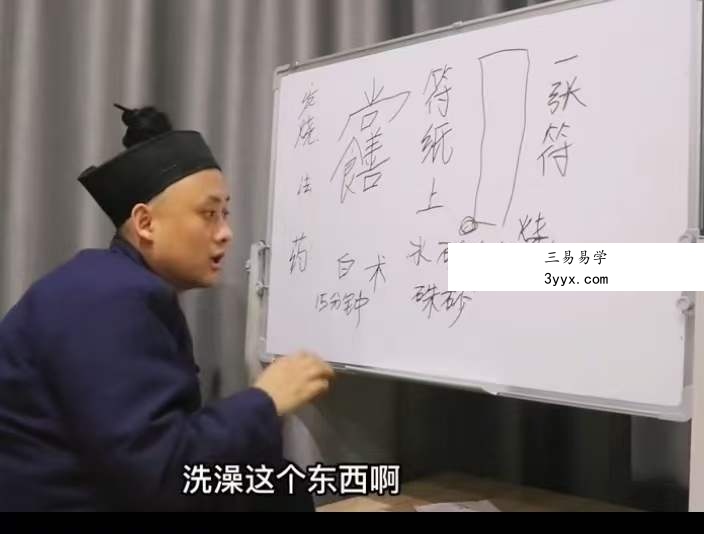 一张符
符纸上
发烧法
药
白术
15分钟
朱砂
三易易学
3yyx.com
洗澡这个东西啊